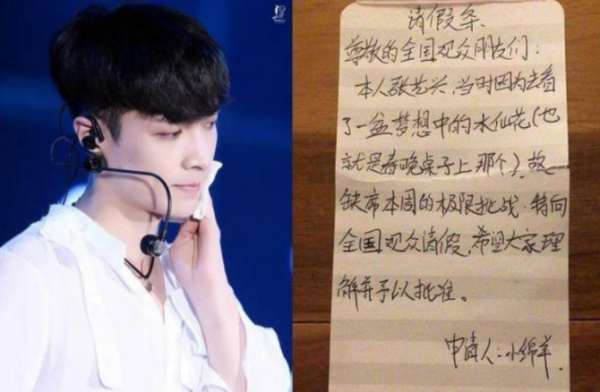 请假条.
尊敬的全国观众朋友们:
本人张艺兴,当时因为去看
了一盆梦想中的水仙花(也
就是春晚桌子上那个).故
缺席本周的极限挑战.特向
全国观众请假,希望大家理
解并予以批准。
申请人:小绵羊.